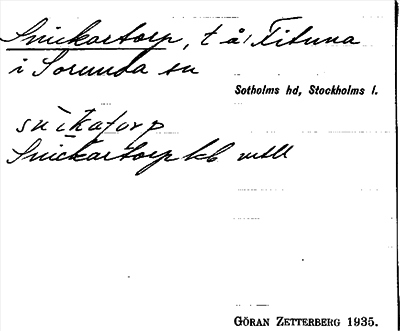 Snickartorp, t å/ Fituna
i Sorunda sn
Sotholms hd, Stockholms l.
snikatorp
Snickartorp kb
GÖRAN ZETTERBERG 1935.